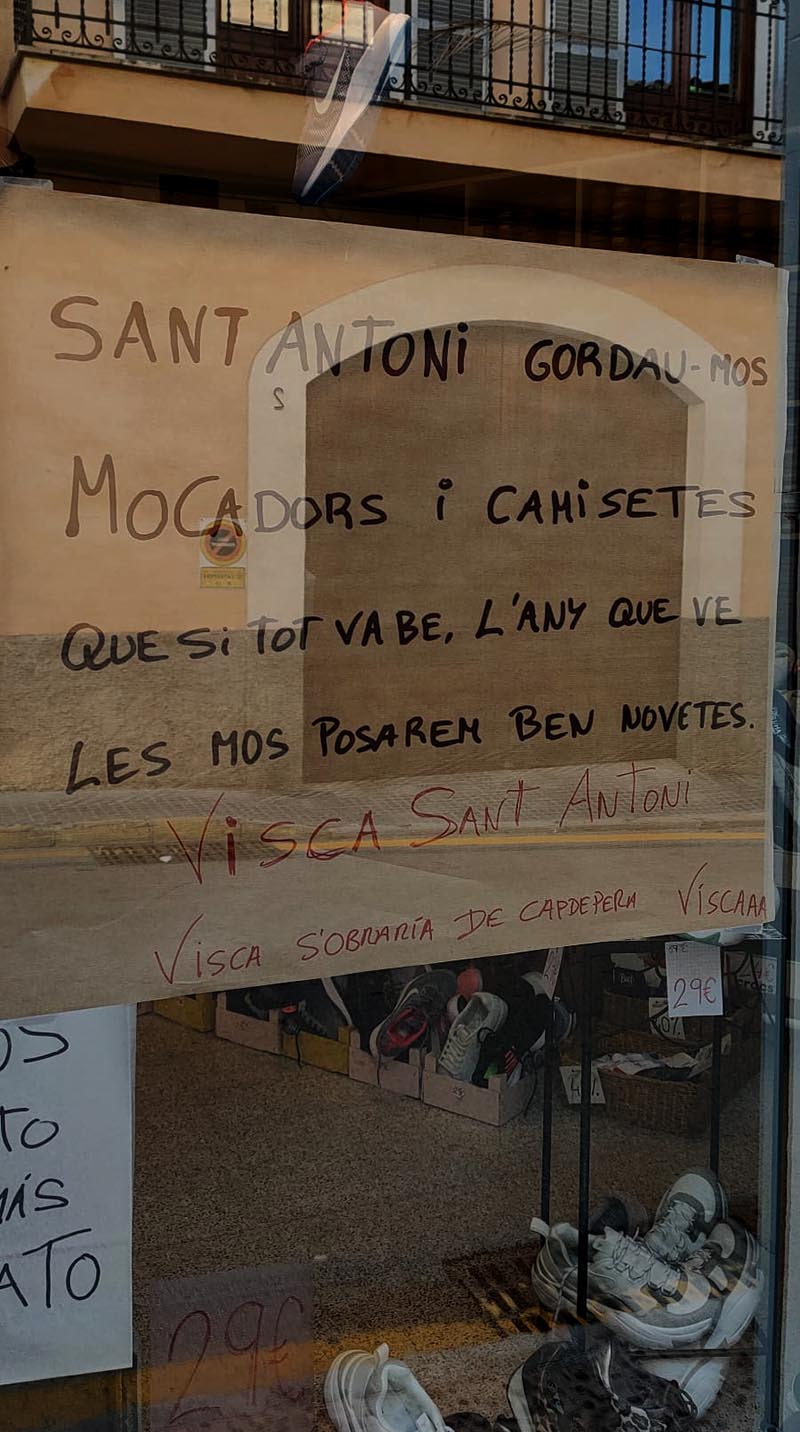 SANT ANTONI GORDAU-MOS
S
MOCADORS i CAMISETES
QUE Si TOT VA BE, L'ANY QUE VE
LES MOS POSAREM BEN NOVETES.
ViSCA SANT ANTONi
ViSCA S'OBRARÍA DE CAPDEPERA VíSCAAA
29€
40%
OS
TO
MÁS
ATO
29€